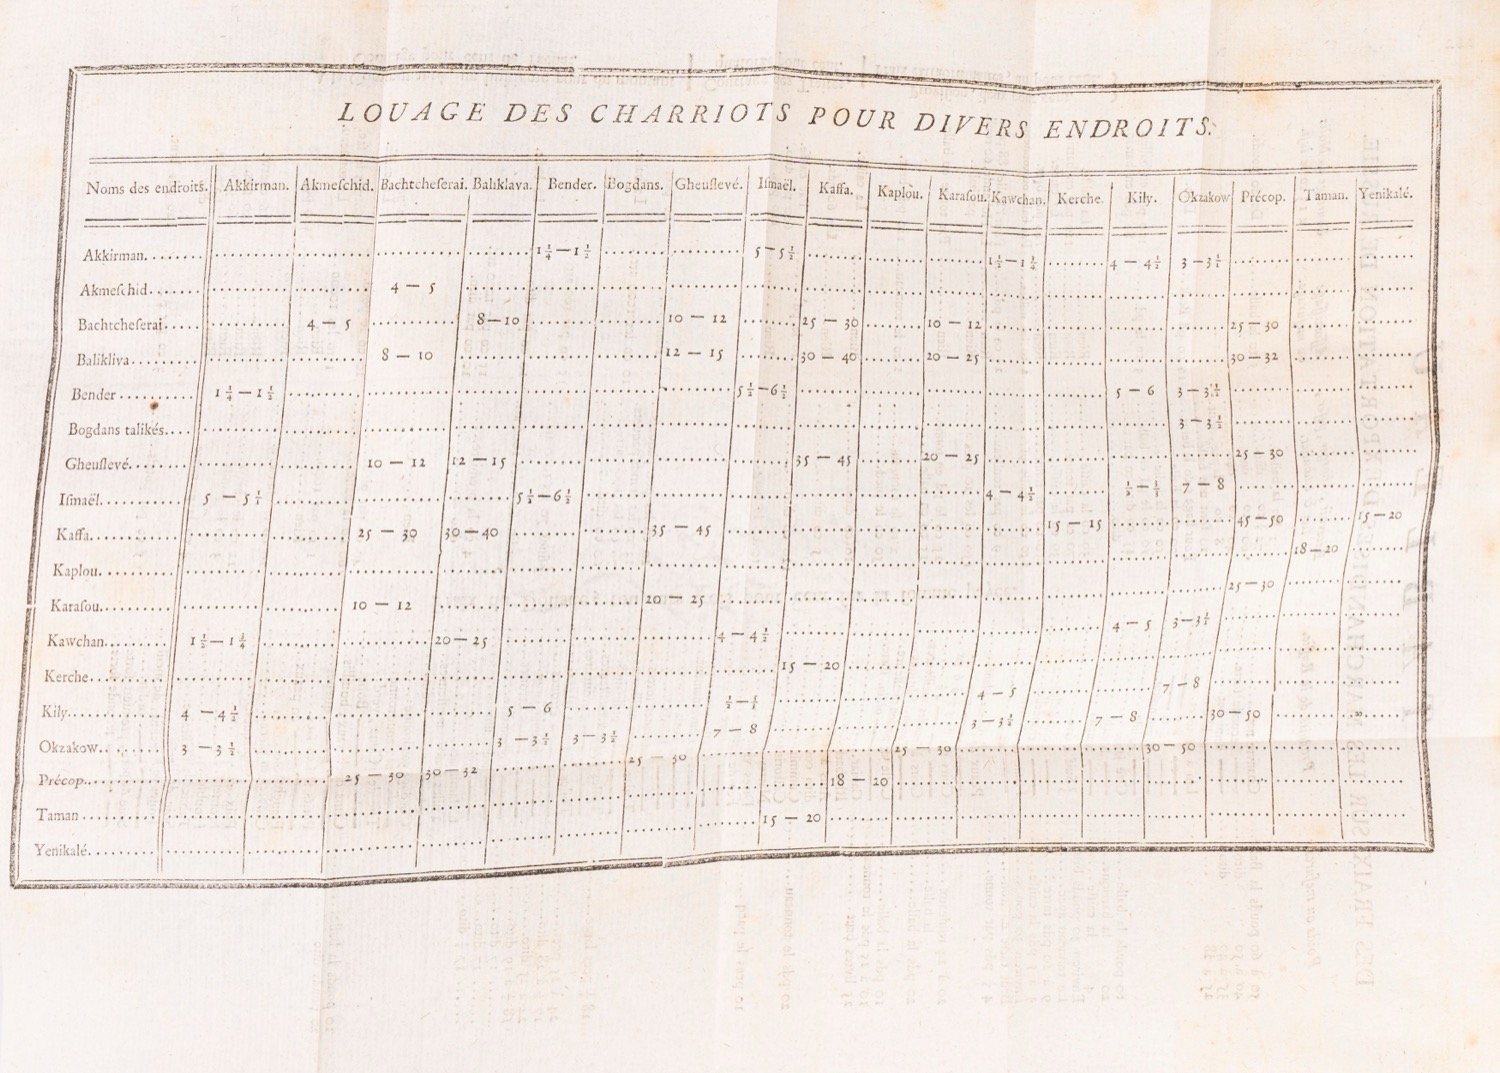 LOUAGE DES CHARRIOTS POUR DIVERS ENDROITS.
Noms des endroits. Akkirman. Akmeſchid. Bachtcheſerai. Baliklava. Bender. Bogdans. Gheuſlevé. Iſmaël. Kaffa. Kaplou. Karaſou. Kawchan. Kerche. Kily. Okzakow Précop. Taman. Yenikalé.
Akkirman....... 1 1/4 — 1 1/2 5 — 5 1/2 1 1/2 — 1 1/4 4 — 4 1/2 3 — 3 1/2
Akmeſchid....... 4 — 5
Bachtcheſerai..... 4 — 5 8 — 10 10 — 12 25 — 30 10 — 12 25 — 30
Balikliva......... 8 — 10 12 — 15 30 — 40 20 — 25 30 — 32
Bender.......... 1 1/4 — 1 1/2 5 1/2 — 6 1/2 5 — 6 3 — 3 1/2
Bogdans talikés.... 3 — 3 1/2
Gheuſlevé........ 10 — 12 12 — 15 35 — 45 20 — 25 25 — 30
Iſmaël.......... 5 — 5 1/2 5 1/2 — 6 1/2 4 — 4 1/2 7 — 8
Kaffa........... 25 — 30 30 — 40 35 — 45 15 — 15 45 — 50 15 — 20
Kaplou.......... 18 — 20
Karaſou.......... 10 — 12 20 — 25 25 — 30
Kawchan........ 1 1/2 — 1 1/4 20 — 25 4 — 4 1/2 4 — 5 3 — 3 1/2
Kerche.......... 15 — 20
Kily............ 4 — 4 1/2 5 — 6 4 — 5 7 — 8
Okzakow........ 3 — 3 1/2 3 — 3 1/2 3 — 3 1/2 7 — 8 3 — 3 1/2 7 — 8 30 — 50
Précop.......... 25 — 30 30 — 32 25 — 30 25 — 30 30 — 50
Taman.......... 18 — 20
Yenikalé......... 15 — 20